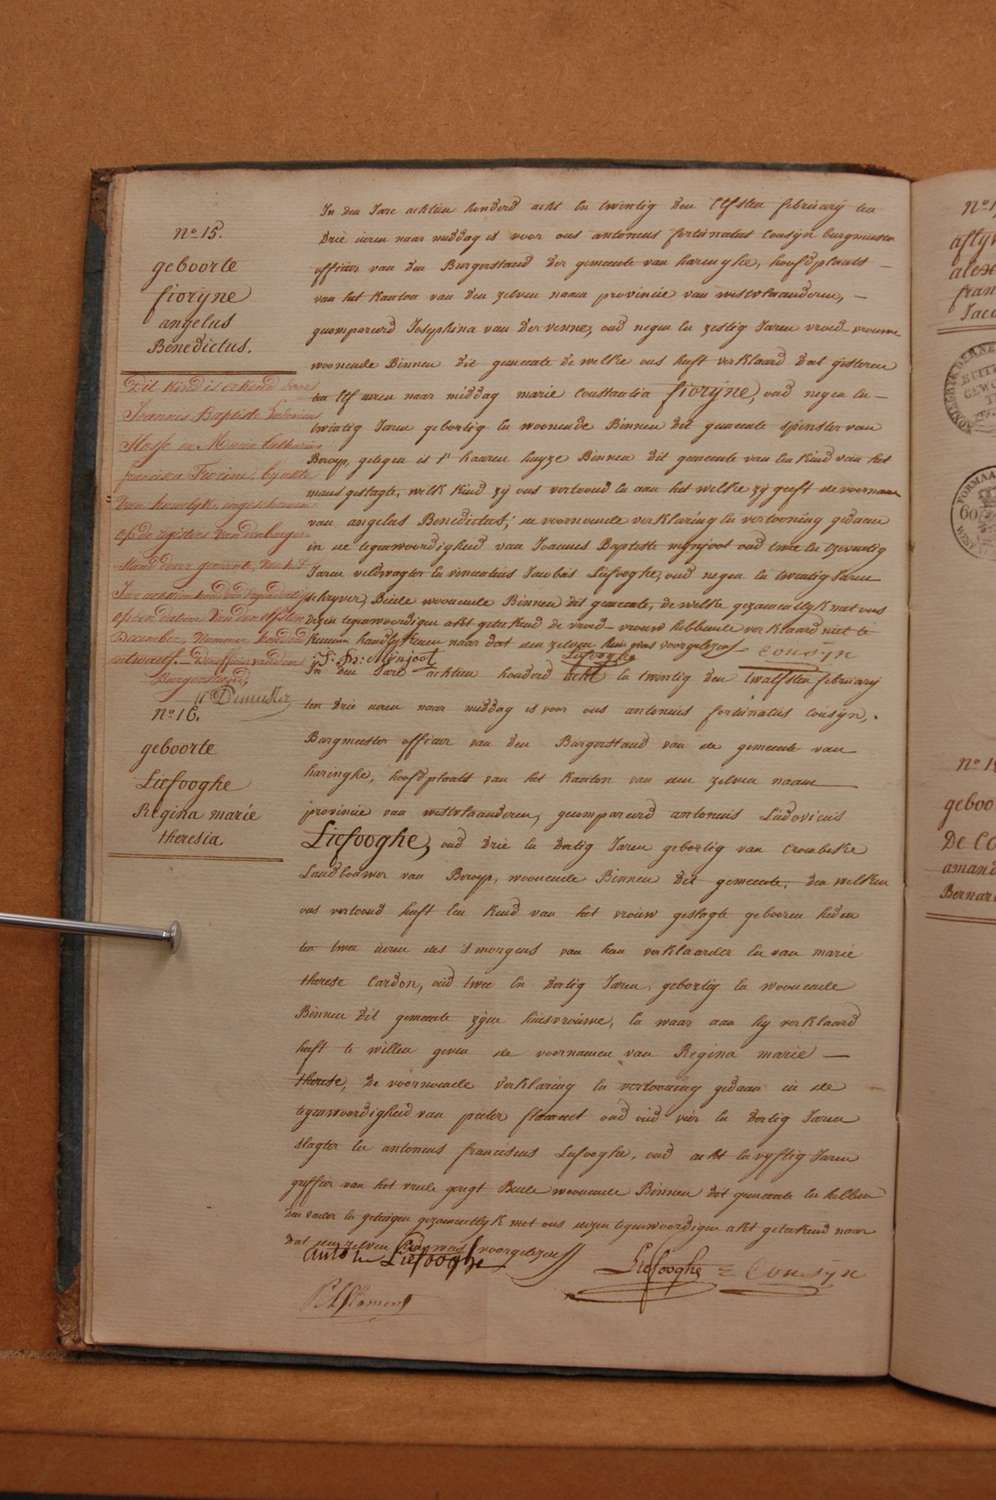 nº 15.
geboorte
fiorijne
angelus
Benedictus.
Dit kind is erkend door
Joannes Baptiste
en Maria Catharina
francisca Fiorine bij akte
van houwelijk, ingeschreven
op de registers van den burger-
stand dezer gemeente,
op den datum van den elfsten
December, Nummer
Den officier van den
Burgerstand,
In den Jare achtien honderd acht en twintig den Elfsten february ten
drie uren naer middag is voor ons antonius fortunatus Cousijn burgmeester
officier van den Burgerstand der gemeente van haringhe, hoofdplaets –
van het kanton van den zelven naem provincie van westvlaanderen, –
gecompareerd Josephina van der venne, oud negen en zestig Jaren vroed vrouwe
woonende Binnen dit gemeente de welke ons heeft verklaard dat gisteren
ten Elf uren naer middag marie Constantia fiorijne, oud negen en –
twintig Jaren geboortig en woonende Binnen dit gemeente spinster van
Beroep, gelegen is in haeren huyze Binnen dit gemeente van een kind van het
mans geslagte, welk kind zij ons vertoond en aan het welke zij geeft de voornaem
van angelus Benedictus; de voornoemde verklaring en vertooning gedaan
in de tegenwoordigheid van Joannes Baptiste monjoot oud twee en tzeventig
Jaren veldwagter en vincentius Jacobus Liefooghe, oud negen en twintig Jaren
schryver, Beide woonende Binnen dit gemeente, de welke gezamentlyk met ons
dezen tegenwoordigen akt geteekend de vroed-vrouw hebbende verklaard niet te
kunnen handteekenen naer dat den zelven hun was voorgelezen
J. Bt: Monjoot
Liefooghe
Cousijn
nº 16.
geboorte
Liefooghe
Regina marie
theresia
In den Jare achtien honderd acht en twintig den twalfsten february
ten drie uren naer middag is voor ons antonius fortunatus Cousijn,
Burgmeester officier van den Burgerstand van de gemeente van
haringhe, hoofdplaats van het kanton van den zelven naem
provincie van westvlaanderen, gecompareerd antonius Ludovicus
Liefooghe, oud drie en dertig Jaren geboortig van Crombeke
Landbouwer van Beroep, woonende Binnen dit gemeente, den welken
ons vertoond heeft een kind van het vrouw geslagte geboren heden
ten twee uren des 's morgens van hem verklaarder en van marie
therese Cardon, oud twee en dertig Jaren, geboortig en woonende
Binnen dit gemeente zijne huisvrouwe, en waar aan hy verklaard
heeft te willen geven de voornamen van Regina marie –
therese, De voornoemde verklaring en vertooning gedaan in de
tegenwoordigheid van pieter flament oud vier en dertig Jaren
slagter en antonius franciscus Liefooghe, oud acht en vyftig Jaren
griffier van het vrede geregt Beide woonende Binnen dit gemeente en hebben
den vader en getuigen gezamentlyk met ons dezen tegenwoordigen akt geteekend naer
dat den zelven hun was voorgelezen
Liefooghe
Liefooghe = Cousijn
Flament